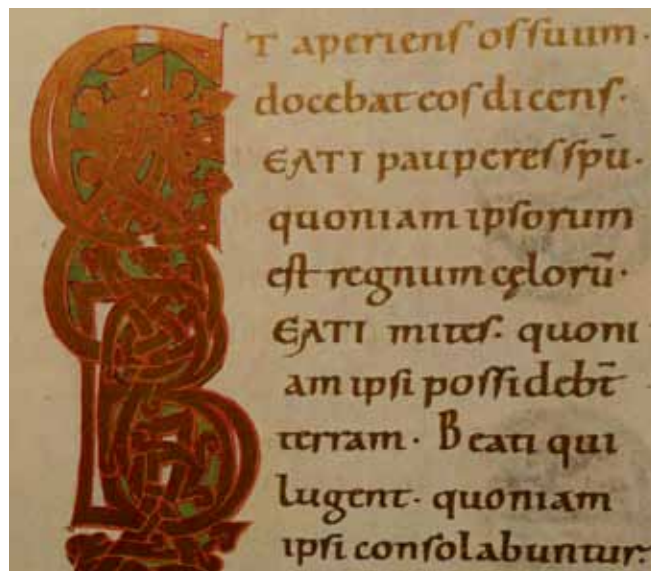 ET aperienſ oſ ſuum·
docebat eoſ dicenſ·
BEATI paupereſ ſpū·
quoniam ipſorum
eſt regnum cęlorū·
BEATI miteſ· quoni
am ipſi poſſidebt̄
terram· Beati qui
lugent· quoniam
ipſi conſolabuntur: